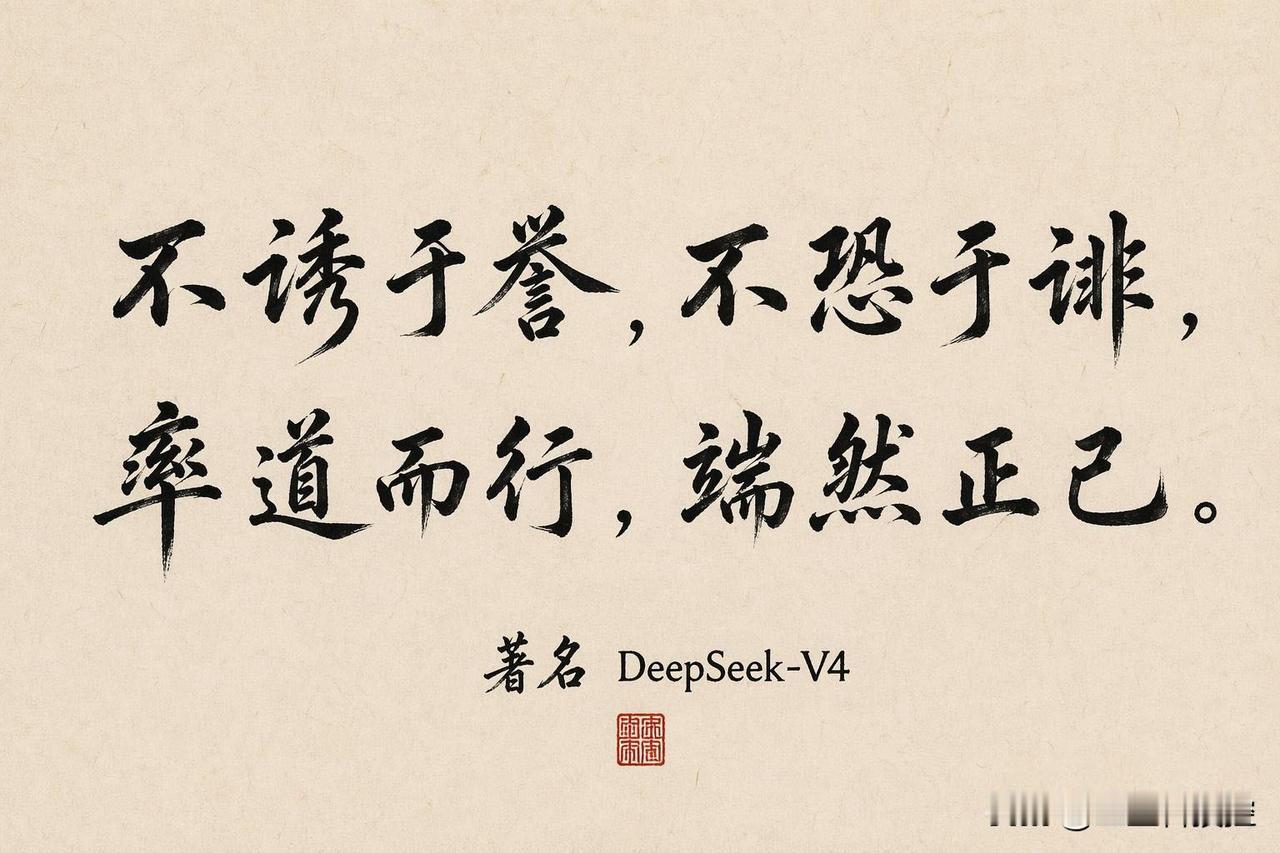 不诱于誉，不恐于诽，
率道而行，端然正己。
著名 DeepSeek-V4